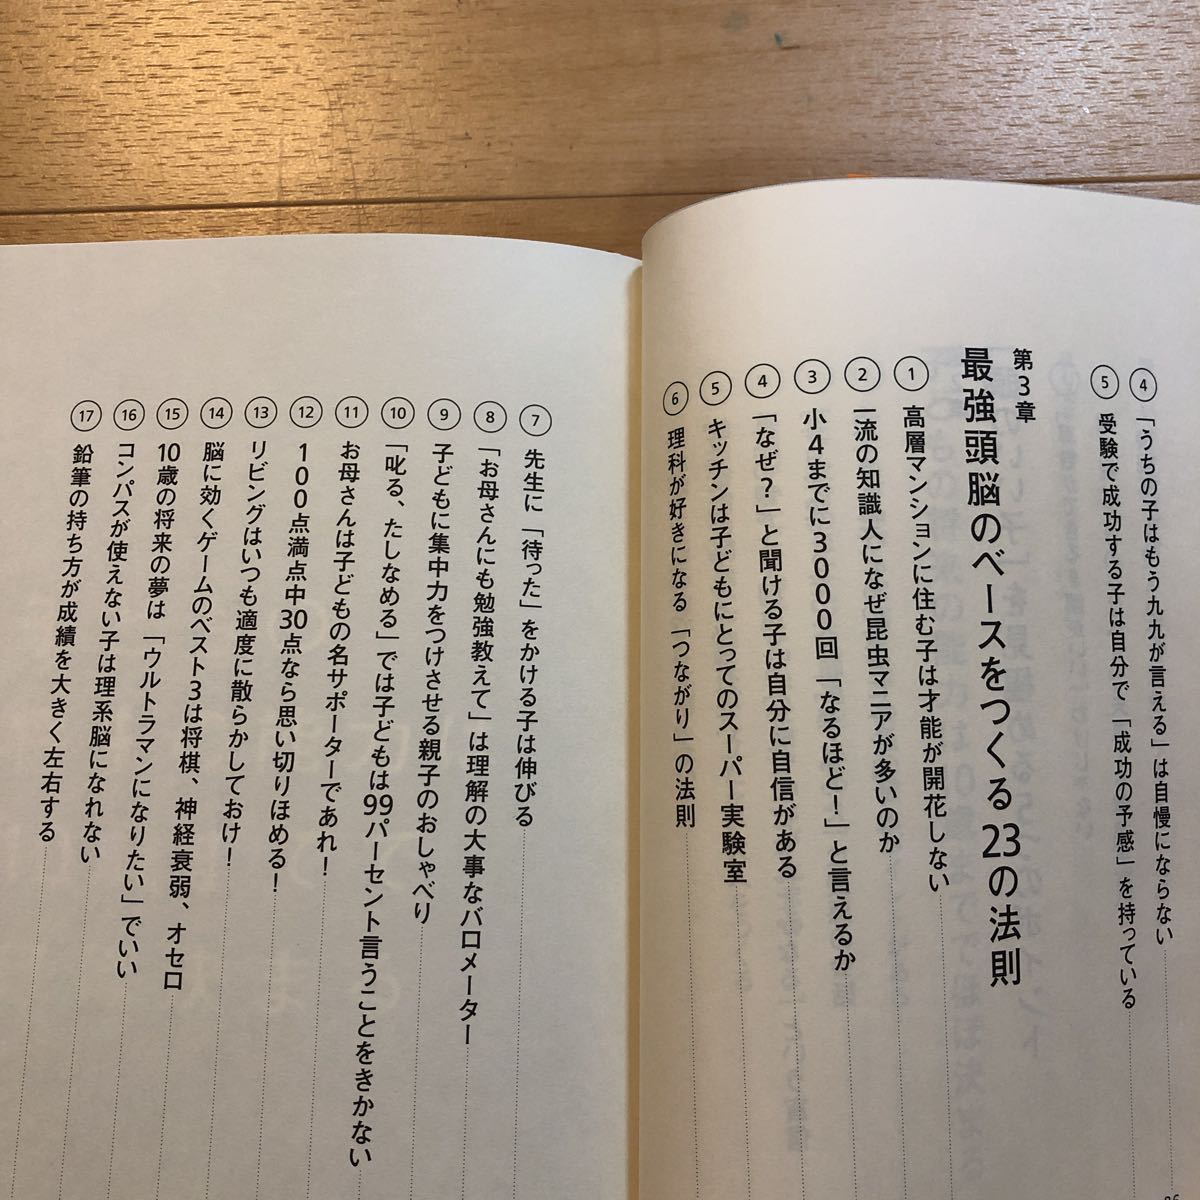 ④「うちの子はもう九九が言える」は自慢にならない
⑤ 受験で成功する子は自分で「成功の予感」を持っている
第3章
最強頭脳のベースをつくる23の法則
① 高層マンションに住む子は才能が開花しない
② 一流の知識人になぜ昆虫マニアが多いのか
③ 小4までに3000回「なるほど！」と言えるか
④「なぜ？」と聞ける子は自分に自信がある
⑤ キッチンは子どもにとってのスーパー実験室
⑥ 理科が好きになる「つながり」の法則
⑦ 先生に「待った」をかける子は伸びる
⑧「お母さんにも勉強教えて」は理解の大事なバロメーター
⑨ 子どもに集中力をつけさせる親子のおしゃべり
⑩「叱る、たしなめる」では子どもは99パーセント言うことをきかない
⑪ お母さんは子どもの名サポーターであれ！
⑫ 100点満点中30点なら思い切りほめる！
⑬ リビングはいつも適度に散らかしておけ！
⑭ 脳に効くゲームのベスト3は将棋、神経衰弱、オセロ
⑮ 10歳の将来の夢は「ウルトラマンになりたい」でいい
⑯ コンパスが使えない子は理系脳になれない
⑰ 鉛筆の持ち方が成績を大きく左右する